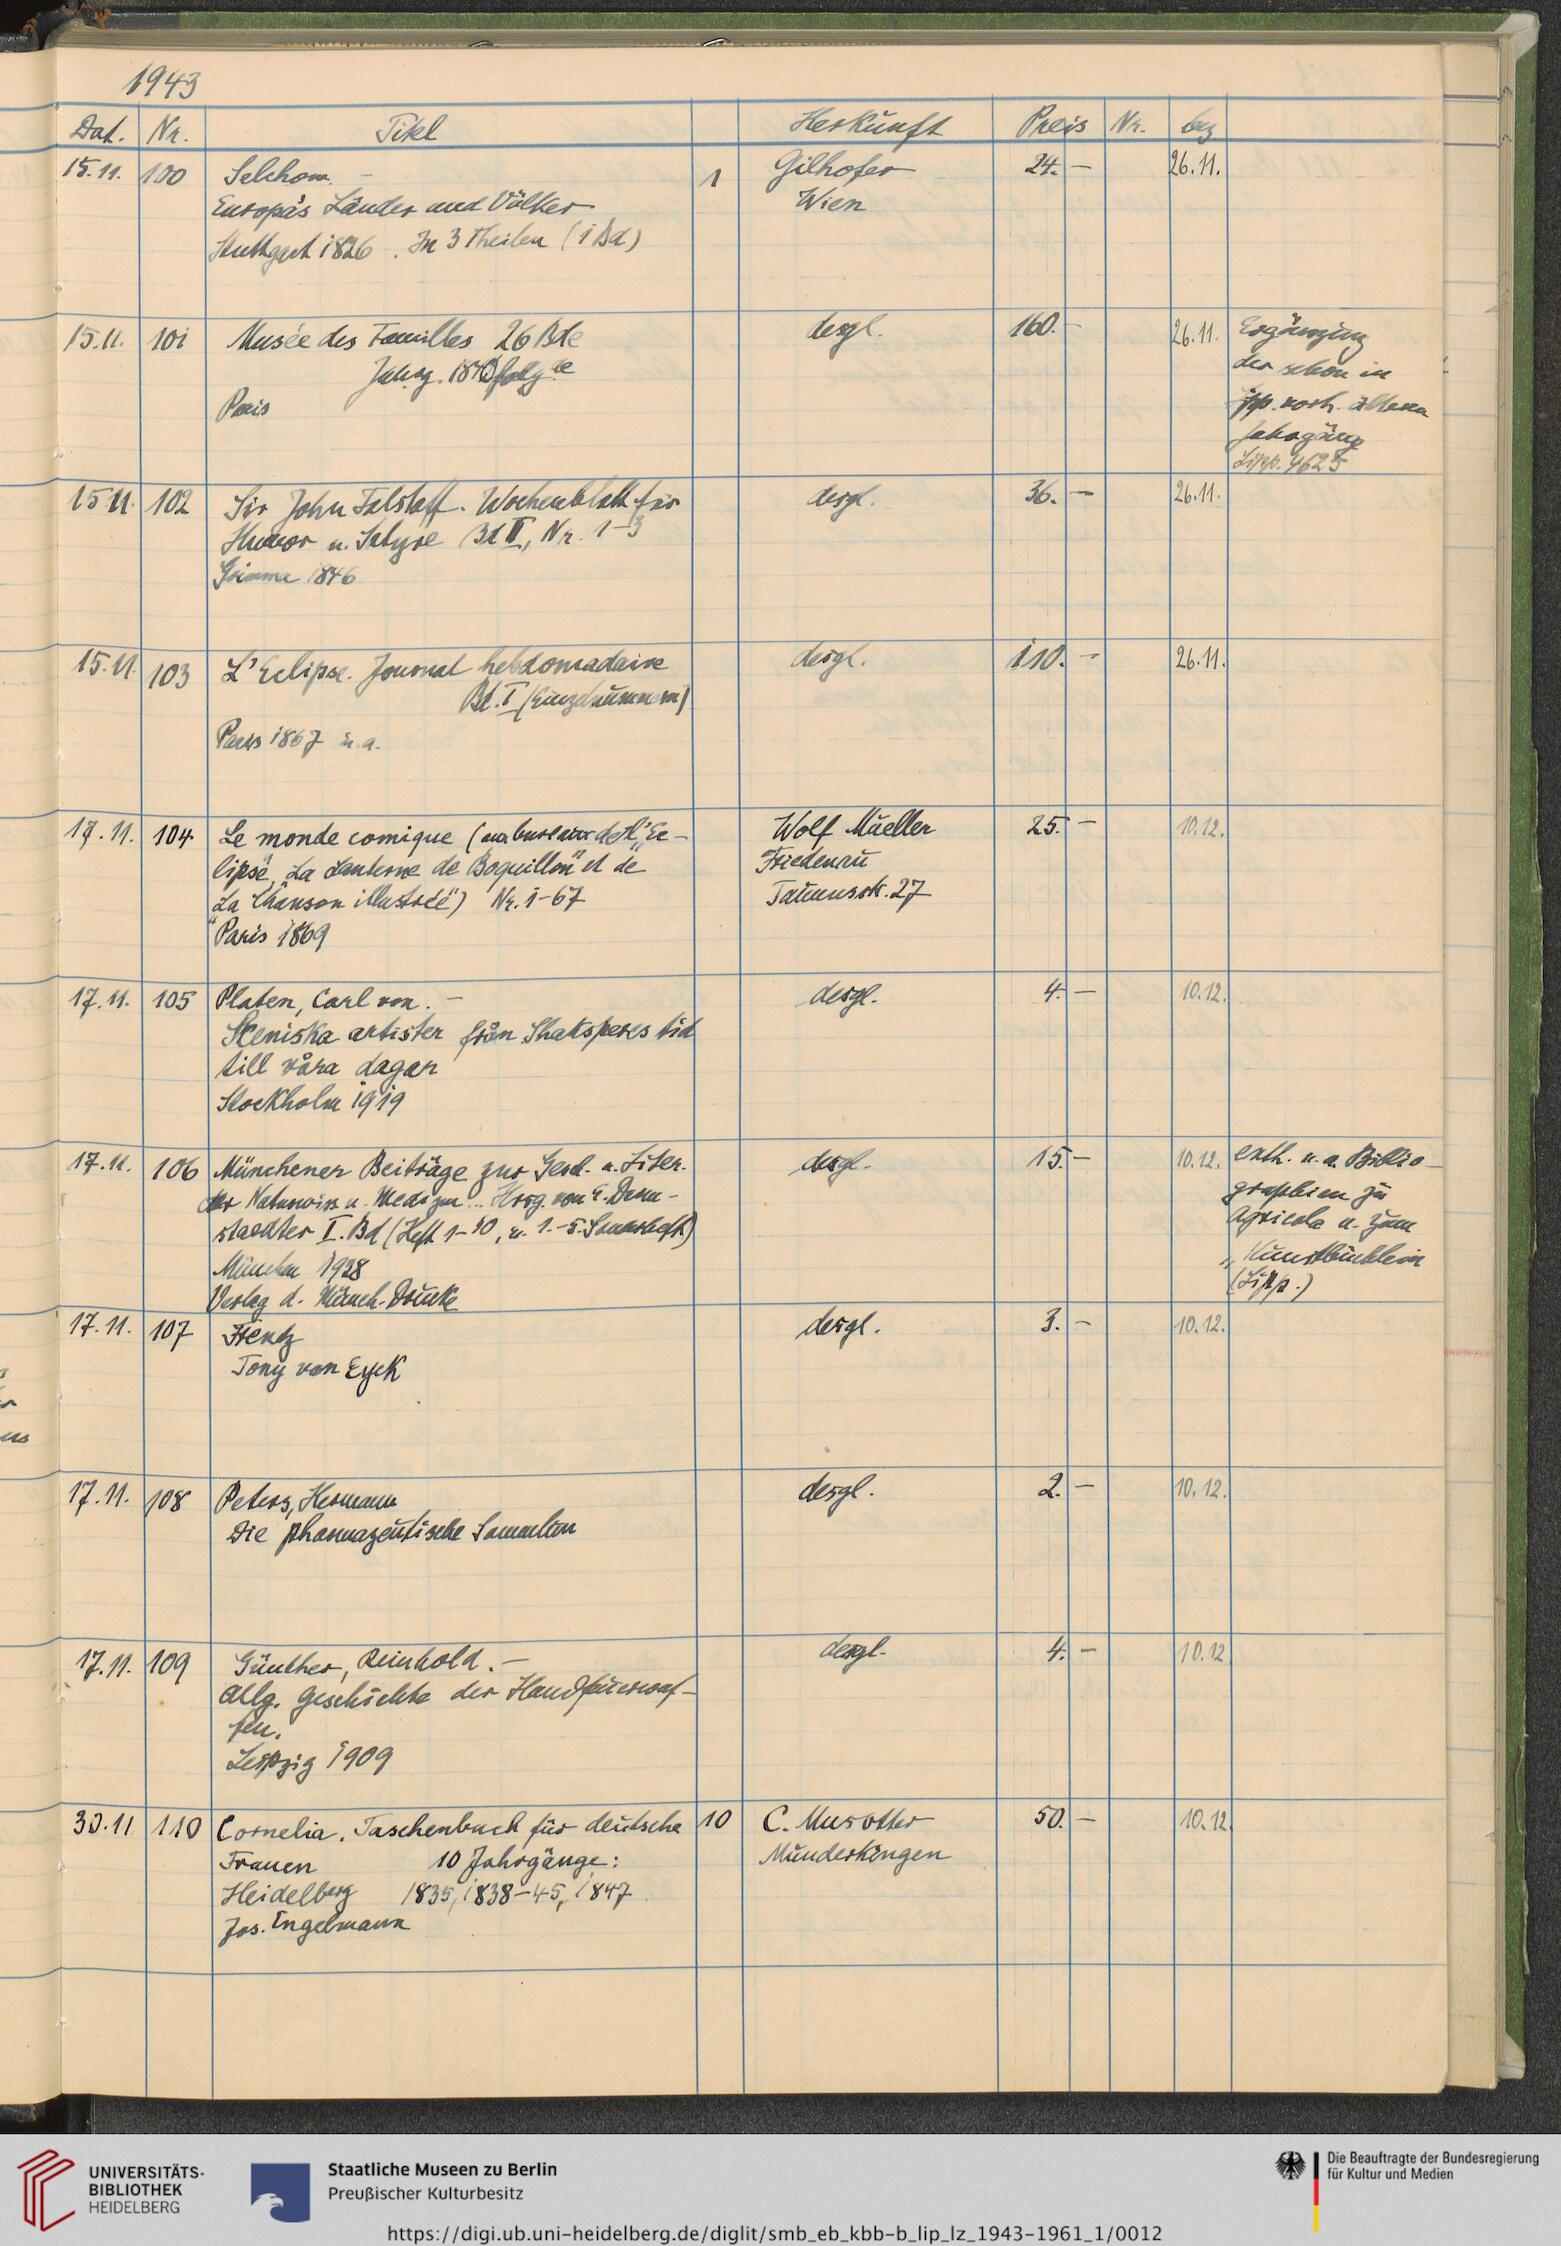 1943
Dat. Nr. Titel Herkunft Preis Nr. bez
15.11. 100 Selchow. – 1 Gilhofer 24. – 26.11.
Europa's Länder und Völker Wien
Stuttgart 1826. In 3 Theilen (1 Bd)
15.11. 101 Musée des Familles 26 Bde desgl. 160. – 26.11. Ergänzung
Jahrg. folgde der schon in
Paris Lipp. vorh. älteren
Jahrgänge
Lipp. 4625
15 11. 102 Sir John Falstaff. Wochenblatt für desgl. 36. – 26.11.
Humor u. Satyre Bd II, Nr. 1–3
Grimma 1846
15.11. 103 L'Eclipse. Journal hebdomadaire desgl. 110. – 26.11.
Bd. I (Einzelnummern)
Paris 1867 u. a.
17.11. 104 Le monde comique (aux bureaux de „L'Ec- Wolf Mueller 25. – 10.12.
lipse", La Lanterne de Boquillon" et de Friedenau
La Chanson illustrée") Nr. 1–67 Taunusstr. 27
"Paris 1869
17.11. 105 Platen, Carl von. – desgl. 4. – 10.12.
Sceniska artister från Shaksperes tid
till våra dagar
Stockholm 1919
17.11. 106 Münchener Beiträge zur Gesch. u. Liter. desgl. 15. – 10.12. enth. u. a. Biblio-
der Naturwiss u. Medizin... Hrsg. von E. Darm- graphien zu
staedter I. Bd (Heft 1–10, u. 1.–5. Sonderheft) Agricola u. zum
München 1928 „Kunstbüchlein
Verlag d. Münch. Drucke (Lipp.)
17.11. 107 Frentz desgl. 3. – 10.12.
Tony van Eyck
17.11. 108 Peters, Hermann desgl. 2. – 10.12.
Die pharmazeutische
17.11. 109 Günther, Reinhold. – desgl. 4. – 10.12
Allg. Geschichte der Handfeuerwaf-
fen.
Leipzig 1909
30.11 110 Cornelia. Taschenbuch für deutsche 10 C. Musotter 50. – 10.12.
Frauen 10 Jahrgänge: Munderkingen
Heidelberg 1835, 1838–45, 1847
Jos. Engelmann
UNIVERSITÄTS-
BIBLIOTHEK
HEIDELBERG
Staatliche Museen zu Berlin
Preußischer Kulturbesitz
Die Beauftragte der Bundesregierung
für Kultur und Medien
https://digi.ub.uni-heidelberg.de/diglit/smb_eb_kbb-b_lip_lz_1943-1961_1/0012